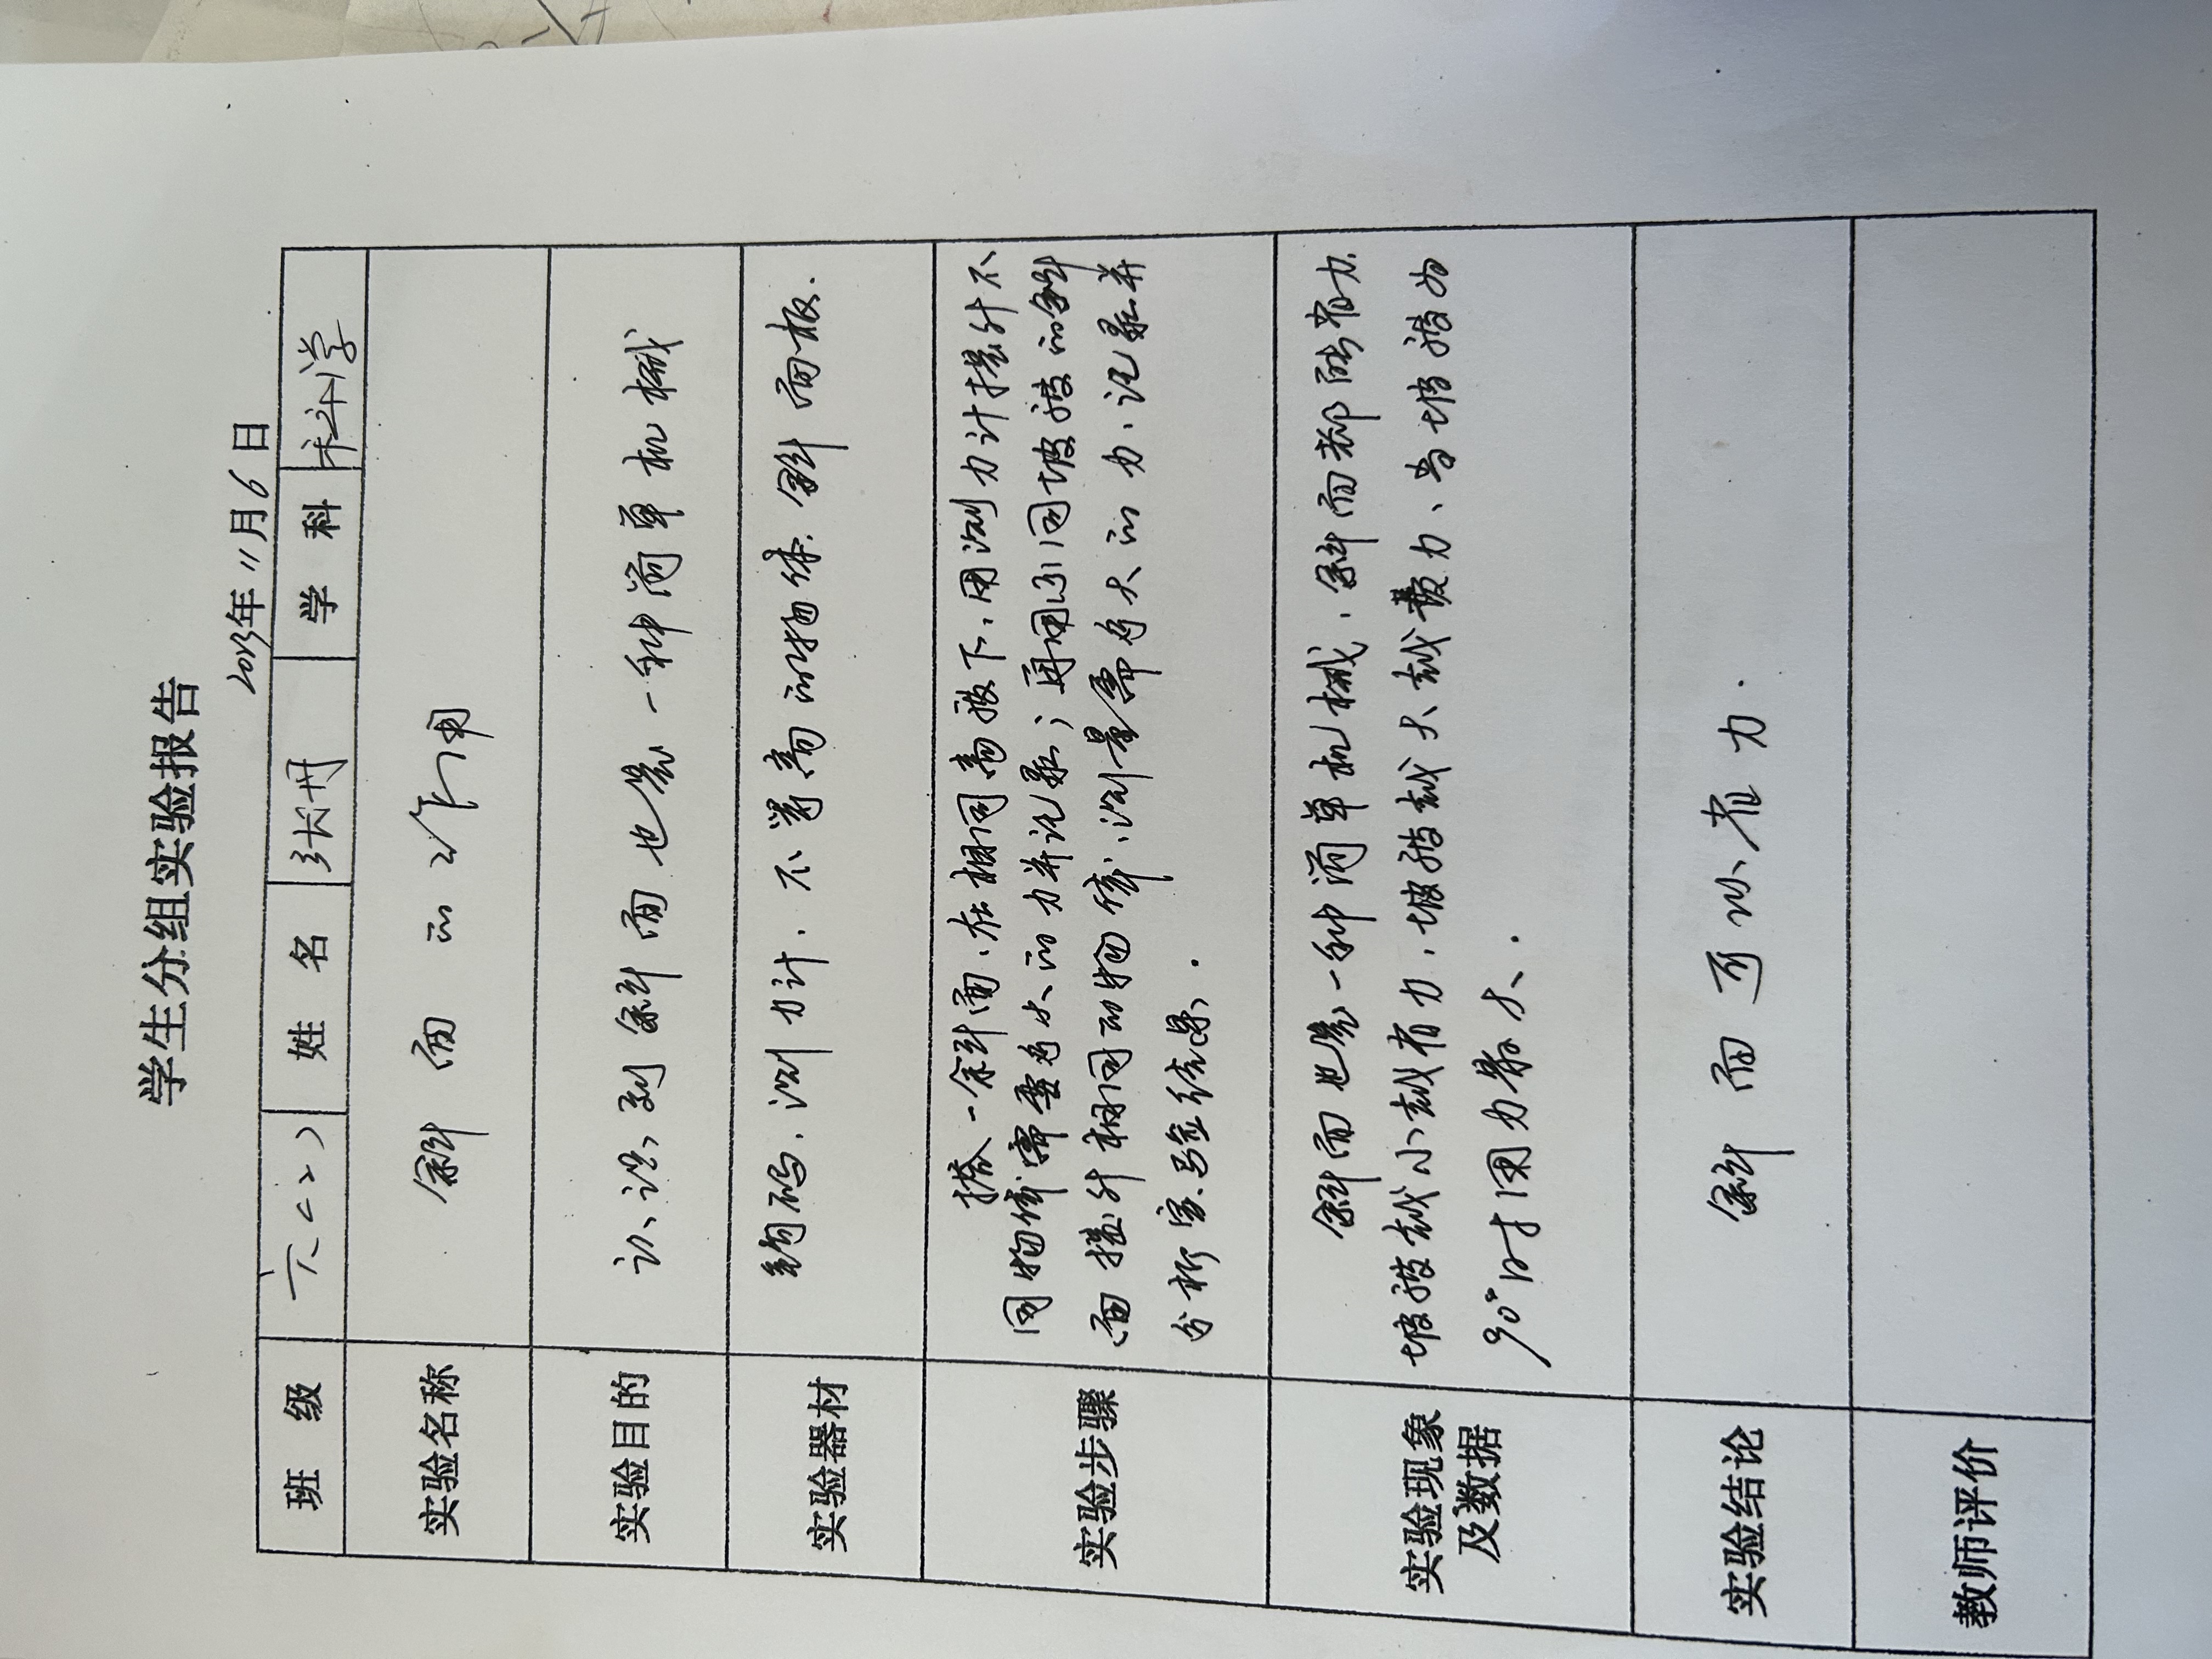 学生分组实验报告
2023年11月6日
班 级 六(二) 姓 名 张丹 学 科 科学
实验名称 斜面的作用
实验目的 认识到斜面也是一种简单机械
实验器材 钩码、测力计、不等高的物体、斜面板.
实验步骤
搭一斜面,在相同高坡下,用测力计提升不
同物体需要多大的力并记录;再用不同坡度的斜
面提升相同的物体,测量需多大的力,记录并
分析实验结果.
实验现象
及数据
斜面也是一种简单机械,斜面都能省力.
坡度越小越省力,坡度越大越费力、当坡度为
90°时用力最大.
实验结论 斜面可以省力.
教师评价